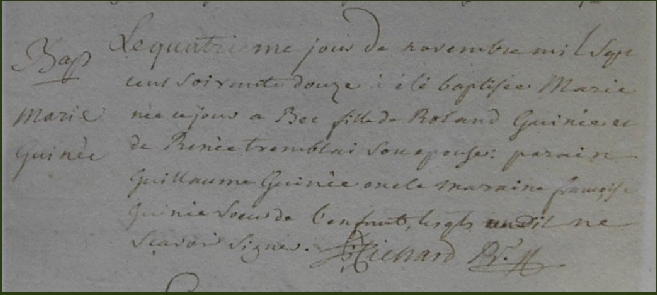 Bap
Marie
Guinée
Le quatrieme jour de novembre mil Sept
cent soixante douze a été baptisée Marie
née ce jour a Bec fille de Roland Guinée et
de Renée tremblai Son epouse parain
Guillaume Guinée oncle maraine françoise
Guinée Soeur de L'enfant, lesqls ont dit ne
Scavoir Signer. Richard Pr.